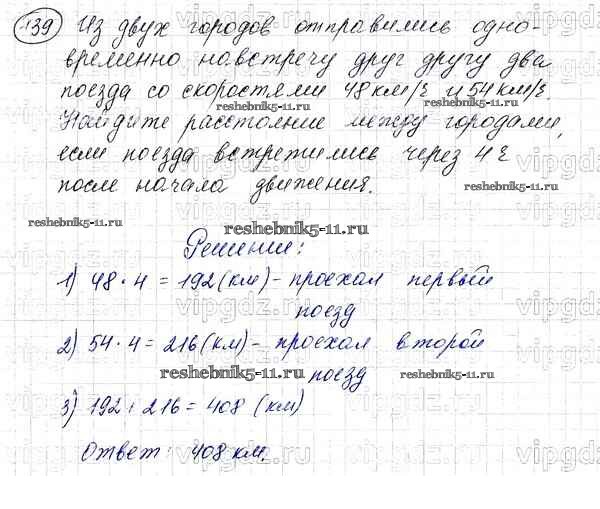 139 Из двух городов отправились одно-
временно навстречу друг другу два
поезда со скоростями 48 км/ч и 54 км/ч.
reshebnik5-11.ru reshebnik5-11.ru
Найдите расстояние между городами,
если поезда встретились через 4 ч
после начала движения.
reshebnik5-11.ru
reshebnik5-11.ru
reshebnik5-11.ru
Решение:
1) 48 · 4 = 192 (км) - проехал первый
поезд
2) 54 · 4 = 216 (км) - проехал второй
поезд
reshebnik5-11.ru reshebnik5-11.ru
3) 192 + 216 = 408 (км)
Ответ: 408 км.